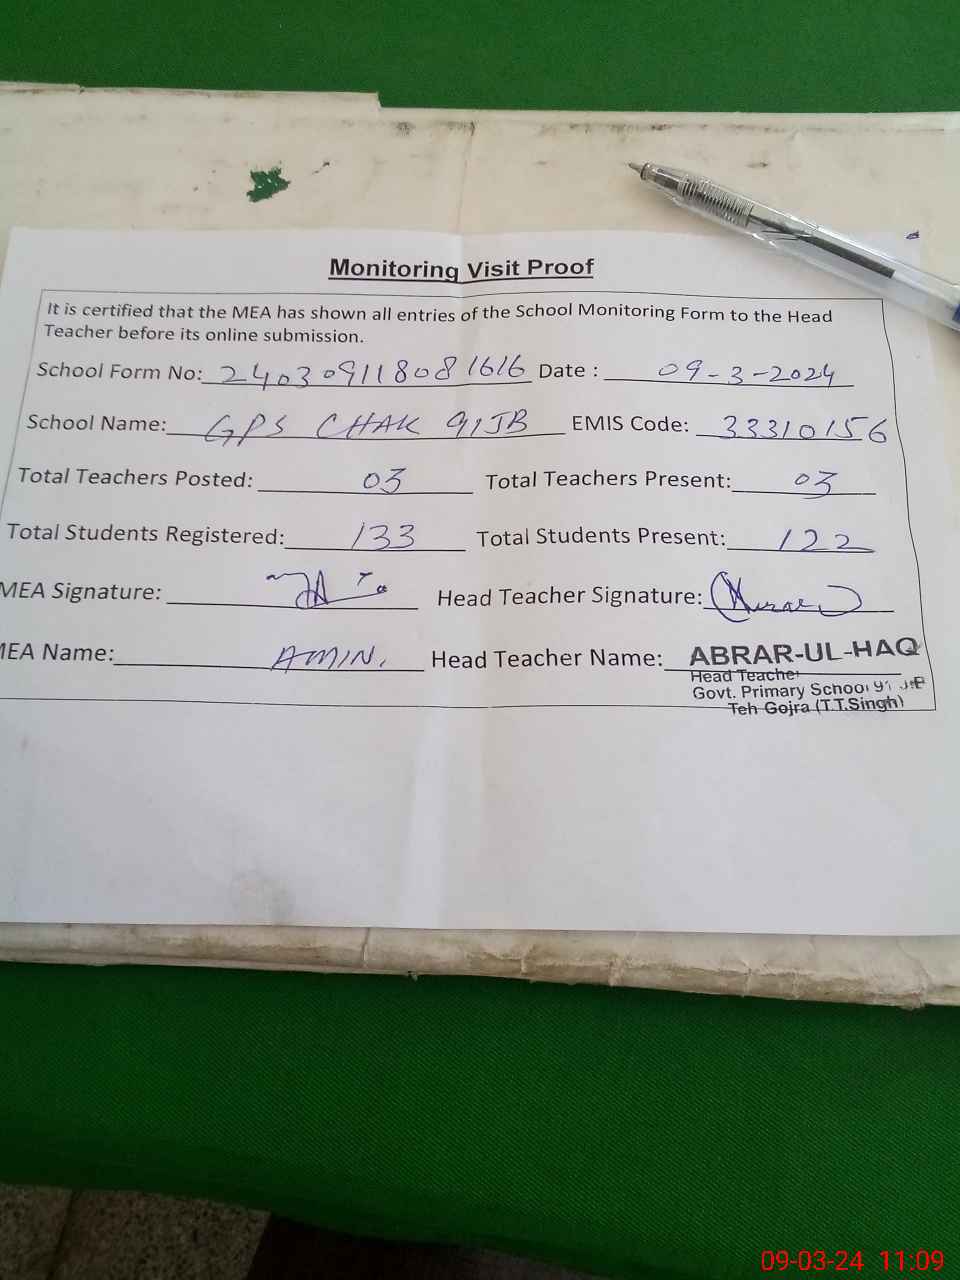 Monitoring Visit Proof
It is certified that the MEA has shown all entries of the School Monitoring Form to the Head
Teacher before its online submission.
School Form No: 240309118081616 Date : 09-3-2024
School Name: GPS CHAK 91JB EMIS Code: 33310156
Total Teachers Posted: 03 Total Teachers Present: 03
Total Students Registered: 133 Total Students Present: 122
MEA Signature: Head Teacher Signature:
MEA Name: AMIN. Head Teacher Name: ABRAR-UL-HAQ
Head Teacher
Govt. Primary School 91 JB
Teh Gojra (T.T.Singh)
09-03-24 11:09